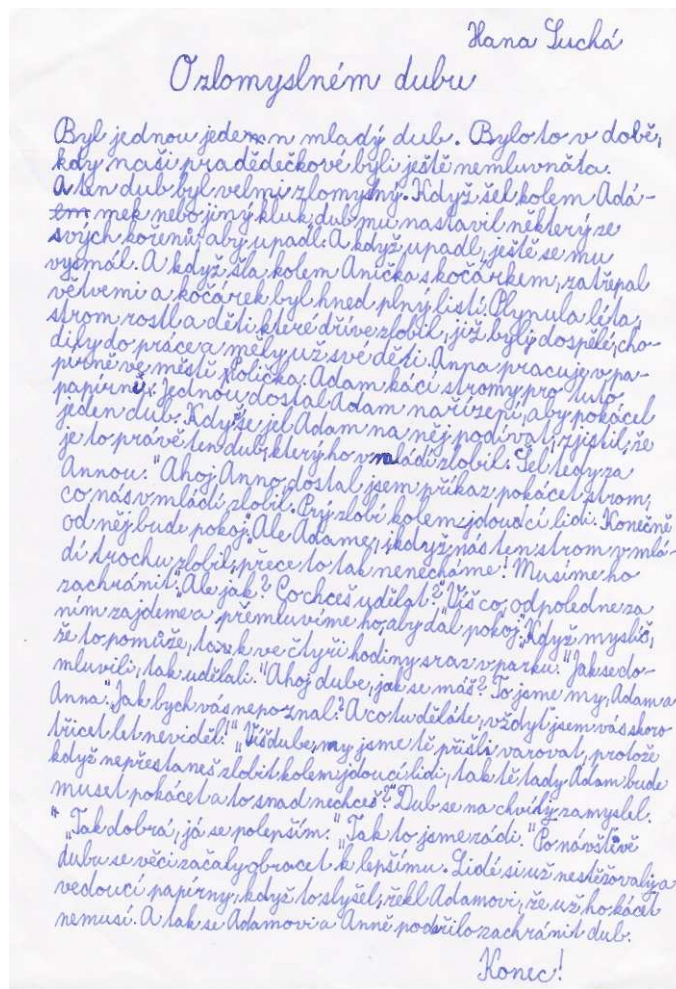 Hana Suchá
O zlomyslném dubu
Byl jednou jeden mladý dub. Bylo to v době,
kdy naši pradědečkové byli ještě nemluvňáta.
A ten dub byl velmi zlomyslný. Když šel kolem Adá-
mek nebo jiný kluk, dub mu nastavil některý ze
svých kořenů, aby upadl. A když upadl, ještě se mu
vysmál. A když šla kolem Anička s kočárkem, zatřepal
větvemi a kočárek byl hned plný listí. Plynula léta,
strom rostl a děti, které dříve zlobil, již byly dospělé, cho-
dily do práce a měly už své děti. Anna pracuje v pa-
pírně ve městě Polička. Adam kácí stromy pro tuto
papírnu. Jednou dostal Adam nařízení, aby pokácel
jeden dub. Když se jel Adam na něj podívat, zjistil, že
je to právě ten dub, který ho v mládí zlobil. Šel tedy za
Annou. "Ahoj Anno, dostal jsem příkaz pokácet strom,
co nás v mládí zlobil. Prý zlobí kolemjdoucí lidi. Konečně
od něj bude pokoj. Ale Adame, i když nás ten strom v mlá-
dí trochu zlobil, přece to tak nenecháme! Musíme ho
zachránit. "Ale jak? Co chceš udělat?" "Víš co, odpoledne za
ním zajdeme a přemluvíme ho, aby dal pokoj. "Když myslíš,
že to pomůže, tak ve čtyři hodiny sraz v parku." Jak se do-
mluvili, tak udělali. "Ahoj dube, jak se máš? To jsme my, Adam a
Anna." "Jak bych vás nepoznal? A co tu děláte, vždyť jsem vás skoro
třicet let neviděl!" "Víš dube, my jsme tě přišli varovat, protože
když nepřestaneš zlobit kolemjdoucí lidi, tak tě tady Adam bude
muset pokácet a to snad nechceš?" Dub se na chvíly zamyslel.
"Tak dobrá, já se polepším." "Tak to jsme rádi." Po návštěvě
dubu se věci začaly obracet k lepšímu. Lidé si už nestěžovali, a
vedoucí papírny, když to slyšel, řekl Adamovi, že už ho kácet
nemusí. A tak se Adamovi a Anně podařilo zachránit dub.
Konec!